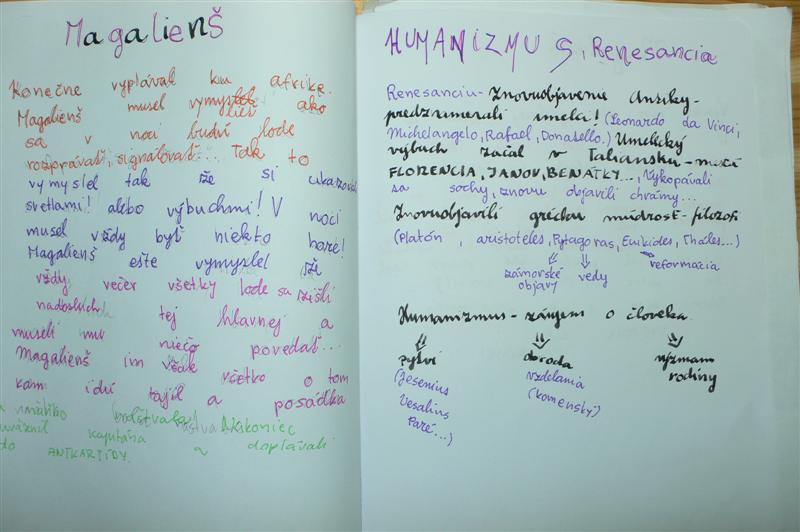 Magalienš
Konečne vyplával ku afrike.
Magalienš musel vymyslieť ako
sa v noci budú lode
rozprávať, signálovať... Tak to
vymyslel tak že si ukazovali
svetlami! alebo výbuchmi! V noci
musel vždy byť niekto hore!
Magalienš ešte vymyslel že
vždy večer všetky lode sa zišli
nadosluch tej hlavnej a
museli mu niečo povedať...
Magalienš im však všetko o tom
kam idú tajil a posádka
umálko
uväznil kapitána a doplávali
do ANTKARTÍDY.
HUMANIZMUS, Renesancia
Renesanciu - Znovuobjavenie Antiky -
predznamenali umelci! (Leonardo da Vinci,
Michelangelo, Rafael, Donatello.) Umelecký
výbuch začal v Taliansku - mestá
FLORENCIA, JANOV, BENÁTKY..., Vykopávali
sa sochy, znovu objavili chrámy...
Znovuobjavili grécku múdrosť - filozofi
(Platón, aristoteles, Pytagoras, Euikides, Tháles...)
zámorské objavy
vedy
reformácia
Humanizmus - záujem o človeka
pytvi
doroda
význam
rodiny
(Jesenius
Vesalius
Paré...)
vzdelania
(Komenský)